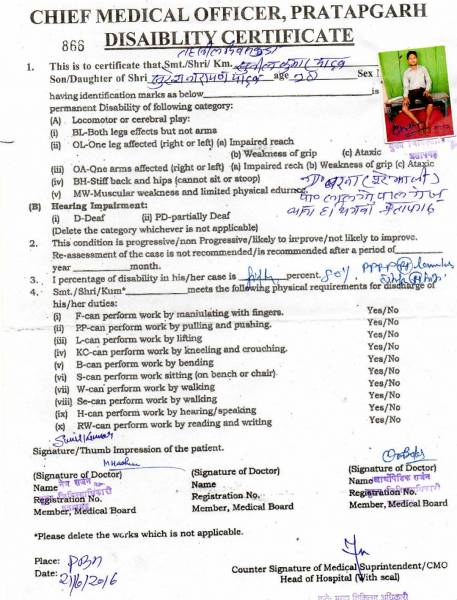 CHIEF MEDICAL OFFICER, PRATAPGARH
866 DISAIBLITY CERTIFICATE
1. This is to certify that Smt./Shri/ Km. सुनील कुमार यादव
Son/Daughter of Shri age 28 Sex
having identification marks as below is
permanent Disability of following category:
(A) Locomotor or cerebral play:
(i) BL-Both legs effects but not arms
(ii) OL-One leg affected (right or left) (a) Impaired reach
(b) Weakness of grip (c) Ataxic
(iii) OA-One arms affected (right or left) (a) Impaired rech (b) Weakness of grip (c) Ataxic
(iv) BH-Stiff back and hips (cannot sit or stoop)
(v) MW-Muscular weakness and limited physical
(B) Hearing Impairment:
(i) D-Deaf (ii) PD-partially Deaf
(Delete the category whichever is not applicable)
2. This condition is progressive/non Progressive/likely to improve/not likely to improve.
Re-assessment of the case is not recommended/is recommended after a period of
year month.
3. I percentage of disability in his/her case is fifty percent. 50%
4. Smt./Shri/Kum* meets the following physical requirements for discharge of
his/her duties:
(i) F-can perform work by maniulating with fingers. Yes/No
(ii) PP-can perform work by pulling and pushing. Yes/No
(iii) L-can perform work by lifting Yes/No
(iv) KC-can perform work by kneeling and crouching. Yes/No
(v) B-can perform work by bending Yes/No
(vi) S-can perform work sitting (on bench or chair) Yes/No
(vii) W-can perform work by walking Yes/No
(viii) Se-can perform work by walking Yes/No
(ix) H-can perform work by hearing/speaking Yes/No
(x) RW-can perform work by reading and writing Yes/No
Sunil Kumar
Signature/Thumb Impression of the patient.
(Signature of Doctor) (Signature of Doctor) (Signature of Doctor)
Name नेत्र सर्जन Name Name आर्थोपेडिक सर्जन
Registration No. Registration No. Registration No.
Member, Medical Board Member, Medical Board Member, Medical Board
*Please delete the works which is not applicable.
Place:
Date: 21/6/2016
Counter Signature of Medical Superintendent/CMO
Head of Hospital (With seal)